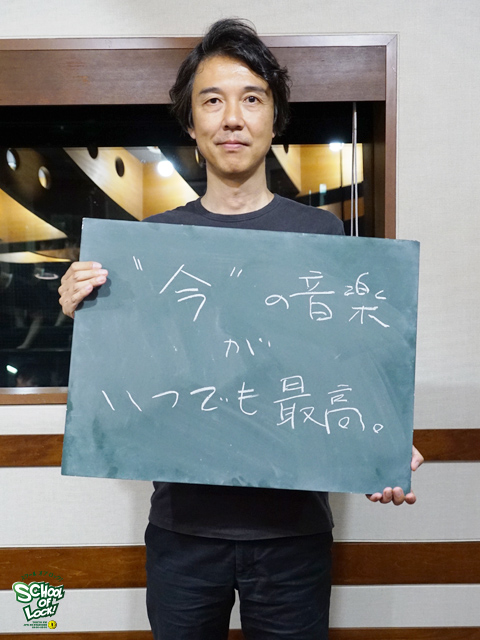 “今”の音楽
が
いつでも最高。
SCHOOL
OF
LOCK!